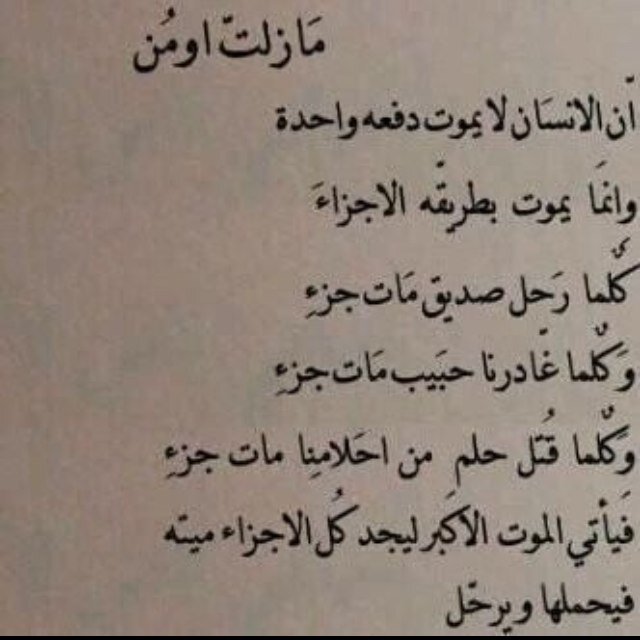 مَازلتّ اومُن
اّن الانسَان لايموت دفعه واحدة
وانمَا يموت بطريقّه الاجزاءَ
كُلّما رَحل صديق مَات جزءِ
وَكُلّما غّادرنا حبَيب مَات جزءِ
وَكُلّما قُتل حلم من احَلامِنا مات جزءِ
فَيأتي الموت الاكَبر ليجد كُل الاجزاء ميته
فيحملها ويرحّل